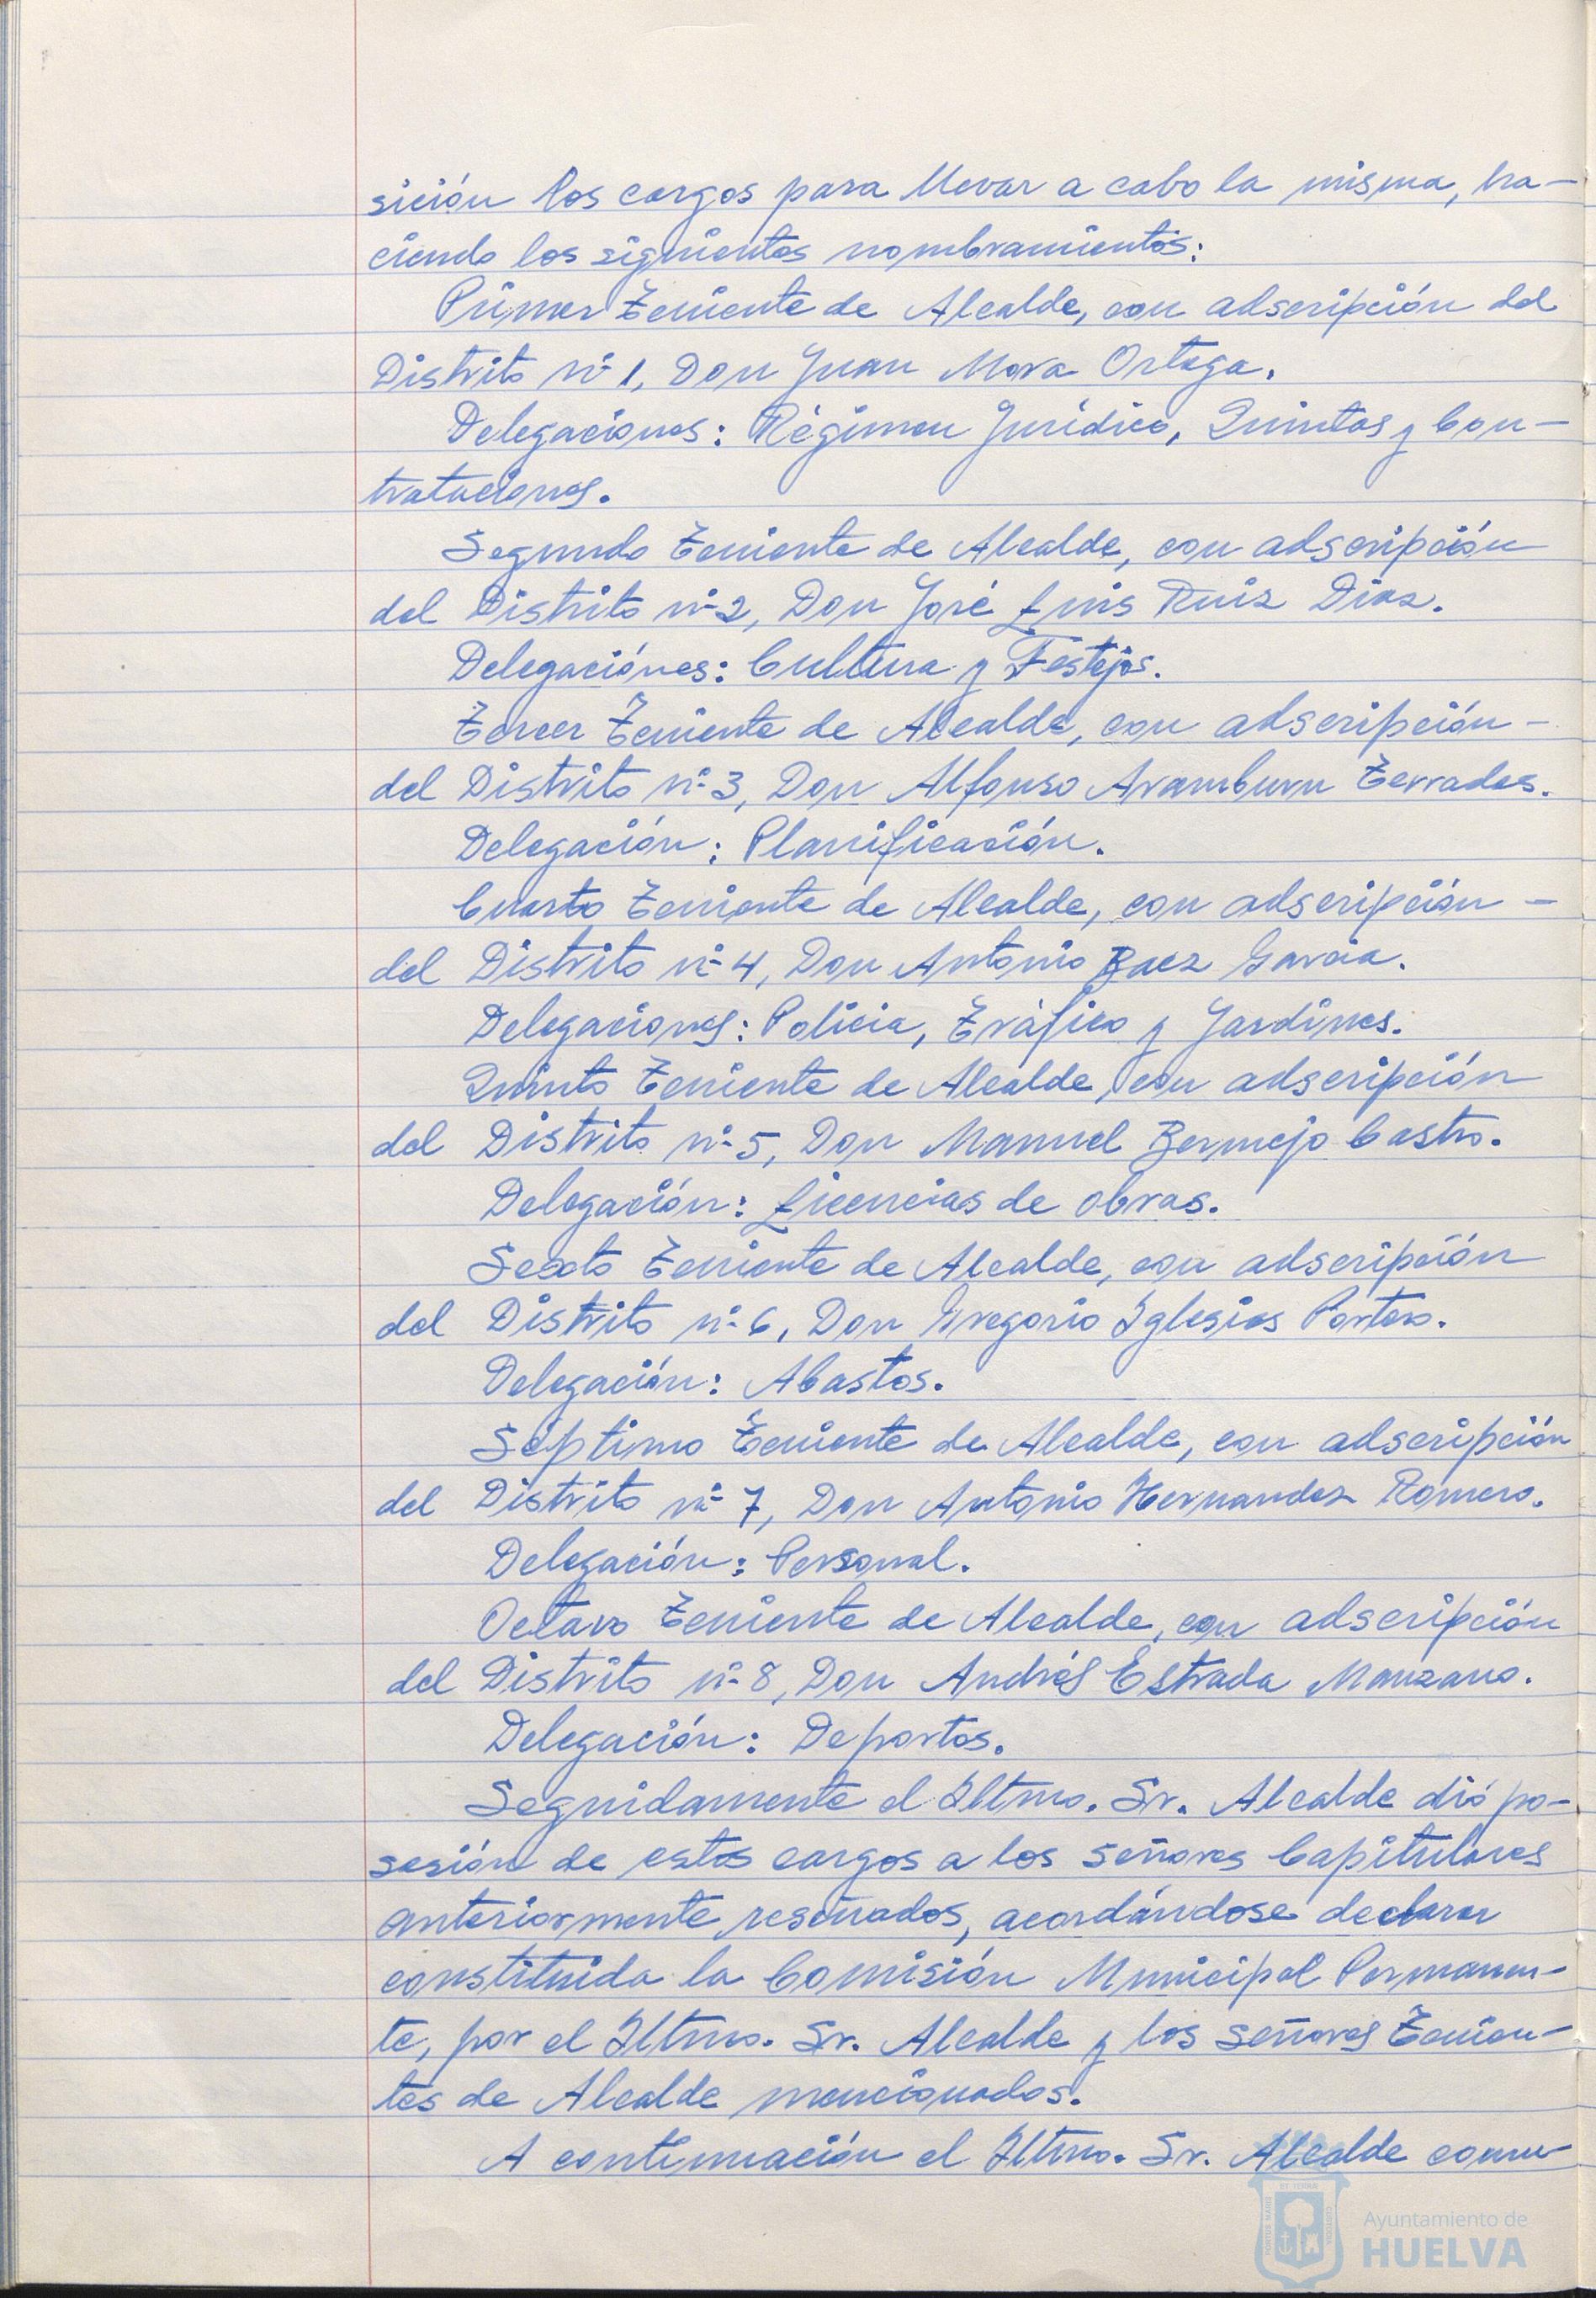 sición los cargos para llevar a cabo la misma, ha-
ciendo los siguientes nombramientos:
Primer Teniente de Alcalde, con adscripción del
Distrito nº 1, Don Juan Mora Ortega.
Delegaciones: Régimen Jurídico, Quintas y Con-
trataciones.
Segundo Teniente de Alcalde, con adscripción
del Distrito nº 2, Don José Luis Ruiz Diaz.
Delegaciónes: Cultura y Festejos.
Tercer Teniente de Alcalde, con adscripción -
del Distrito nº 3, Don Alfonso Aramburu Terrades.
Delegación: Planificación.
Cuarto Teniente de Alcalde, con adscripción -
del Distrito nº 4, Don Antonio Baez Garcia.
Delegaciones: Policia, Tráfico y Jardines.
Quinto Teniente de Alcalde, con adscripción
del Distrito nº 5, Don Manuel Bermejo Castro.
Delegación: Licencias de obras.
Sexto Teniente de Alcalde, con adscripción
del Distrito nº 6, Don Gregorio Iglesias Portero.
Delegación: Abastos.
Séptimo Teniente de Alcalde, con adscripción
del Distrito nº 7, Don Antonio Hernandez Romero.
Delegación: Personal.
Octavo Teniente de Alcalde, con adscripción
del Distrito nº 8, Don Andrés Estrada Manzano.
Delegación: Deportes.
Seguidamente el Iltmo. Sr. Alcalde dió po-
sesión de estos cargos a los señores Capitulares
anteriormente reseñados, acordándose declarar
constituida la Comisión Municipal Permanen-
te, por el Iltmo. Sr. Alcalde y los señores Tenien-
tes de Alcalde mencionados.
A continuación el Iltmo. Sr. Alcalde comu-
Ayuntamiento de
HUELVA